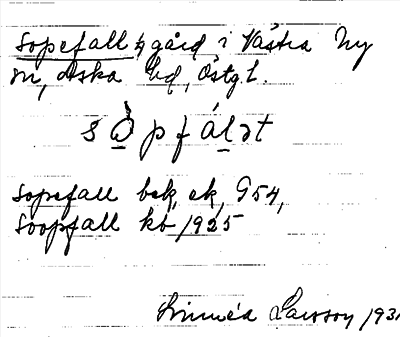 Sopefall, gård i Västra Ny
sn, Aska hd, Östgl.
s ò̱ p f á ḻ ə t
Sopefall bek, ek, G54,
Soopfall kb 1925
Linnéa Larsson 193